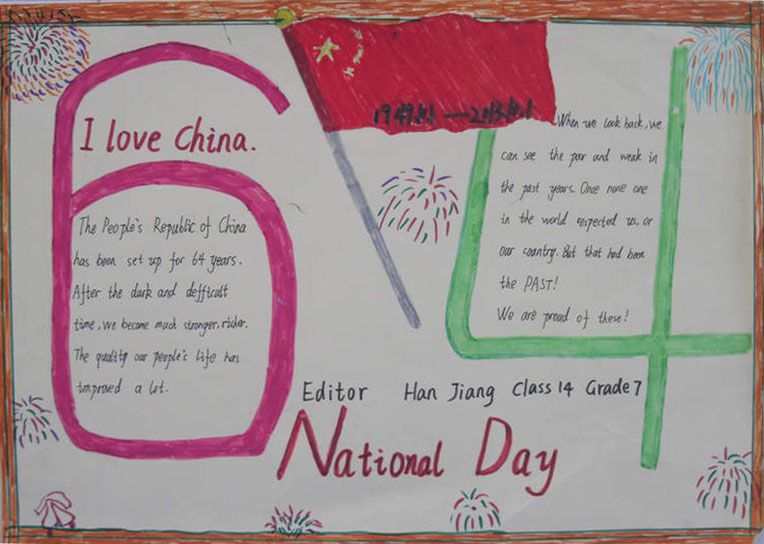 1949.10.1 — 2013.10.1
I love China.
The People's Republic of China
has been set up for 64 years.
After the dark and defficult
time, we become much stronger, richer.
The quality our people's life has
improved a lot.
When we look back, we
can see the poor and weak in
the past years. Once none one
in the world respected us, or
our country. But that had been
the PAST!
We are proud of these!
Editor Han Jiang Class 14 Grade 7
National Day